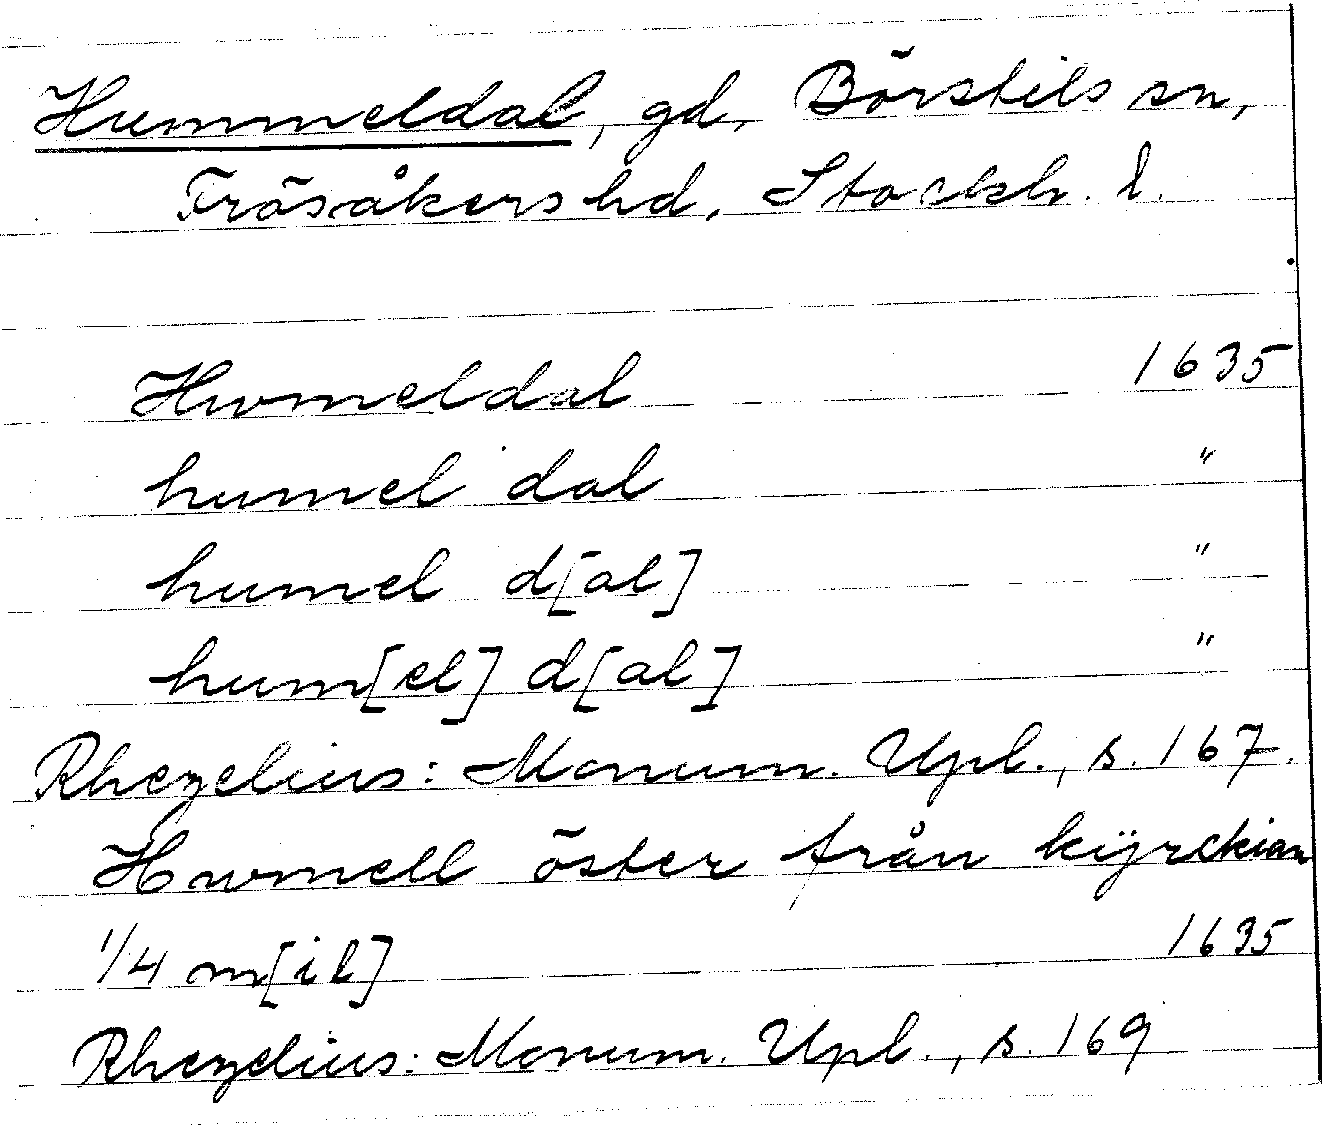 Hummeldal, gd, Börstils sn,
Frösåkers hd, Stockh. l.
Hwmeldal 1635
humel dal "
humel d[al] "
hum[el] d[al] "
Rhezelius: Monum. Upl., s. 167.
Hwmell öster från kÿrckian
1/4 m[il] 1635
Rhezelius: Monum. Upl., s. 169